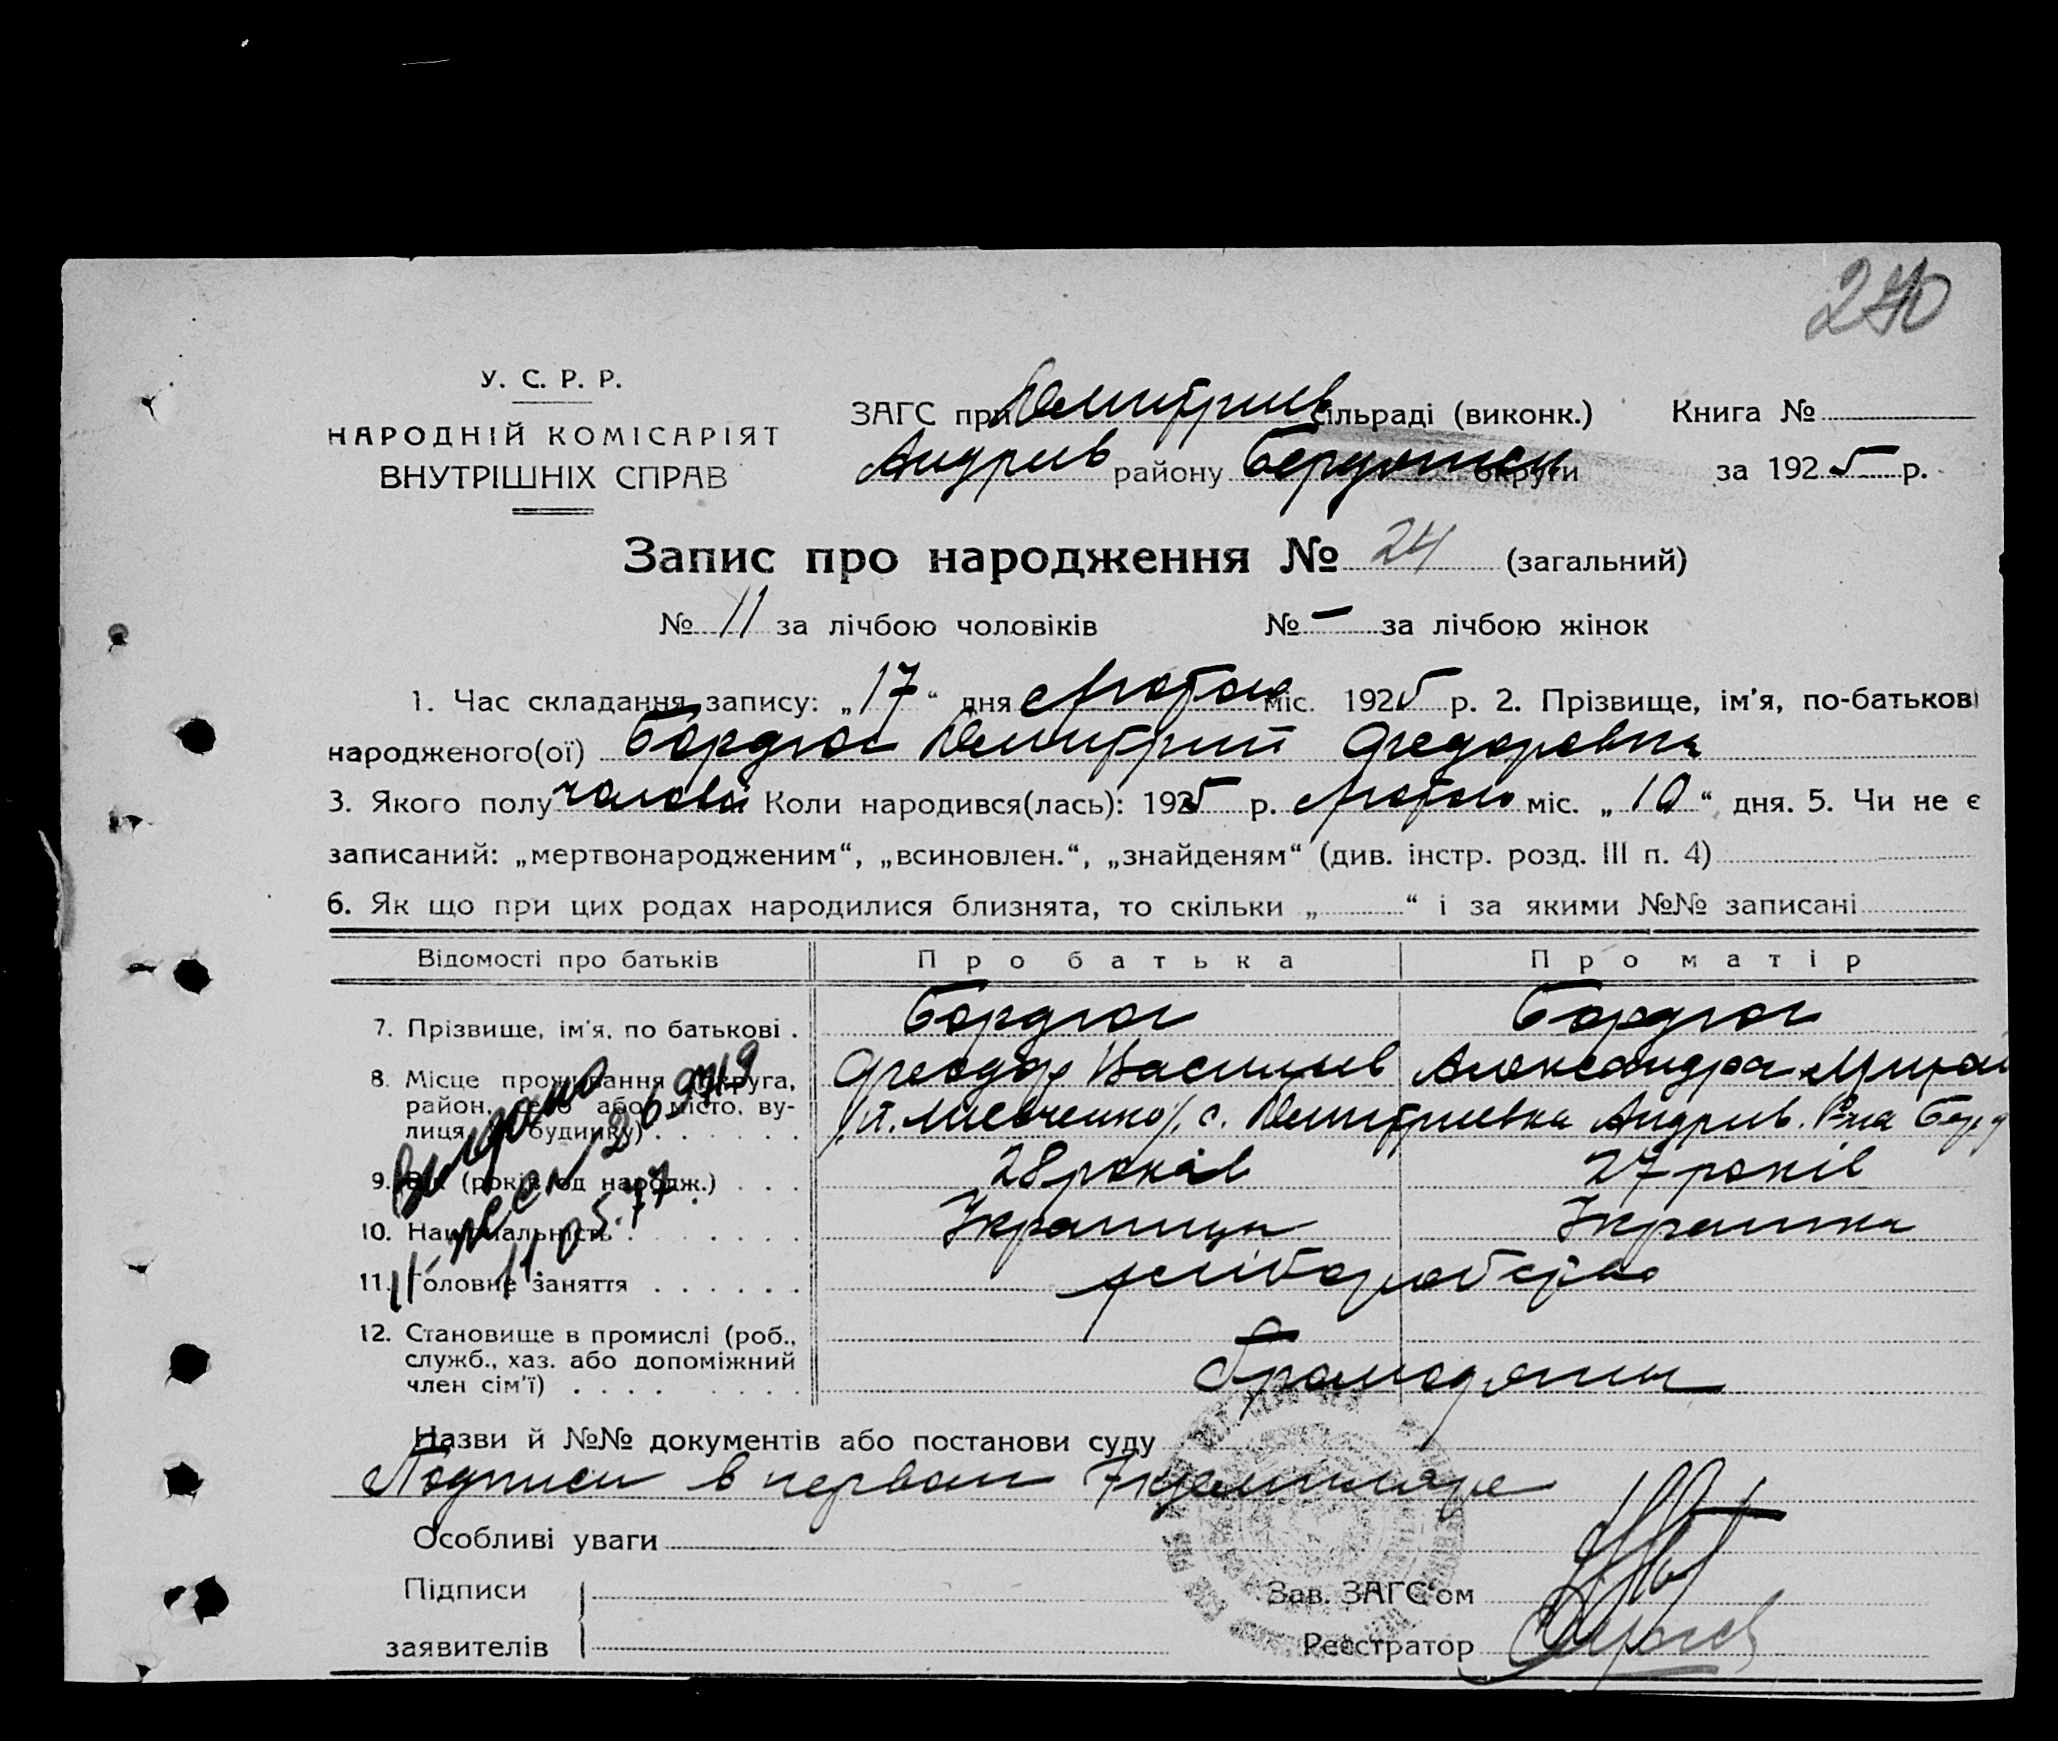 240
У. С. Р. Р.
НАРОДНІЙ КОМІСАРІЯТ
ВНУТРІШНІХ СПРАВ
ЗАГС при Дмитрив сільраді (виконк.) Книга №
Андрив району Бердянськ округи за 1925 р.
Запис про народження № 24 (загальний)
№ 11 за лічбою чоловіків № – за лічбою жінок
1. Час складання запису: „17“ дня Лютого міс. 1925 р. 2. Прізвище, ім'я, по-батькові
народженого(ої) Бардгос Дмитрий Феодорович
3. Якого полу чолові Коли народився(лась): 1925 р. Лютого міс. „10“ дня. 5. Чи не є
записаний: „мертвонародженим“, „всиновлен.“, „знайденям“ (див. інстр. розд. III п. 4)
6. Як що при цих родах народилися близнята, то скільки „ “ і за якими №№ записані
Відомості про батьків Про батька Про матір
7. Прізвище, ім'я, по батькові . Бардгос Бардгос
8. Місце проживання (округа, Феодор Васильев Александра
район, село або місто, ву-
лиця, № будинку) . . . . . . с. Дмитриевка Андрив. Р-на Берд
9. Вік (років од народж.) . . . 28 років 27 років
10. Національність . . . . . . . Украинец Украинка
11. Головне заняття . . . . . . хліборобство
12. Становище в промислі (роб.,
служб., хаз. або допоміжний
член сім'ї) . . . . . . . . Громодяни
Назви й №№ документів або постанови суду
Подписи в первом Экземпляре
Особливі уваги
Підписи
заявителів
Зав. ЗАГС'ом
Реєстратор